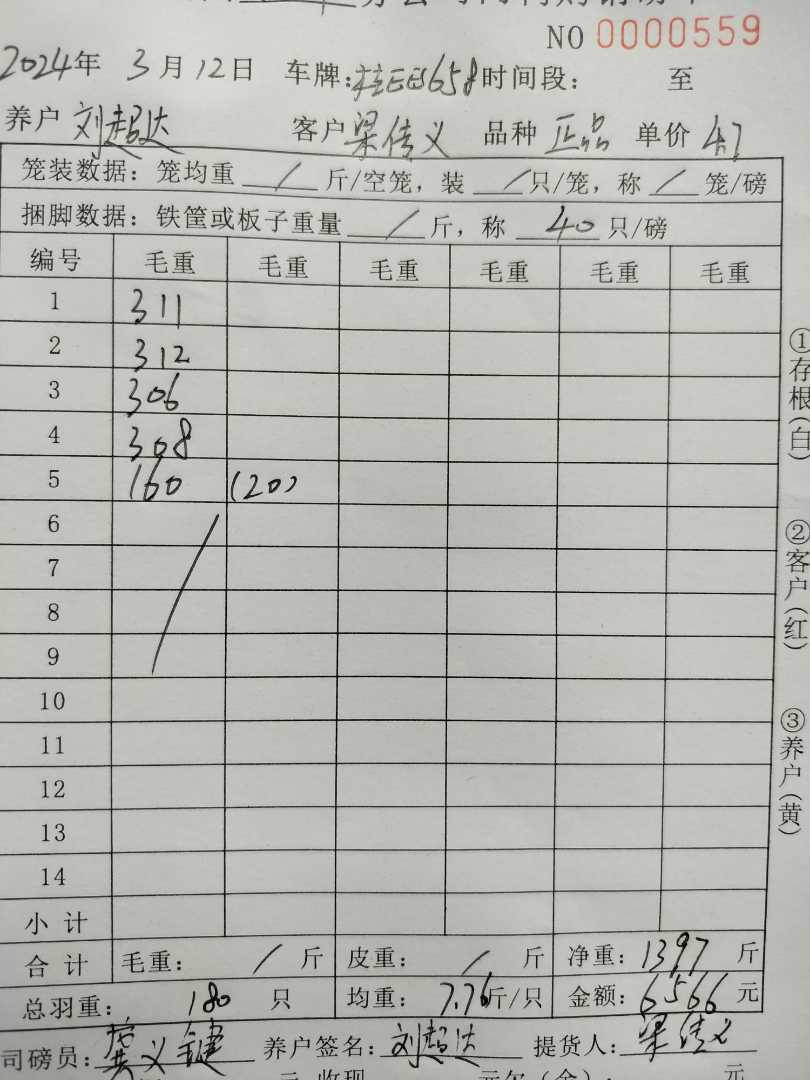 NO 0000559
2024年 3月12日 车牌:桂EE5658 时间段: 至
养户 刘超达 客户 梁传义 品种 正品 单价 4.7
笼装数据:笼均重 / 斤/空笼,装 / 只/笼,称 / 笼/磅
捆脚数据:铁筐或板子重量 / 斤,称 40 只/磅
编号 毛重 毛重 毛重 毛重 毛重 毛重
1 311
2 312
3 306
4 308
5 160 (20)
6
7
8
9
10
11
12
13
14
小计
合计 毛重: / 斤 皮重: / 斤 净重: 1397 斤
总羽重: 180 只 均重: 7.76 斤/只 金额: 6566 元
司磅员: 龚义键 养户签名: 刘超达 提货人: 梁传义
①存根(白)
②客户(红)
③养户(黄)